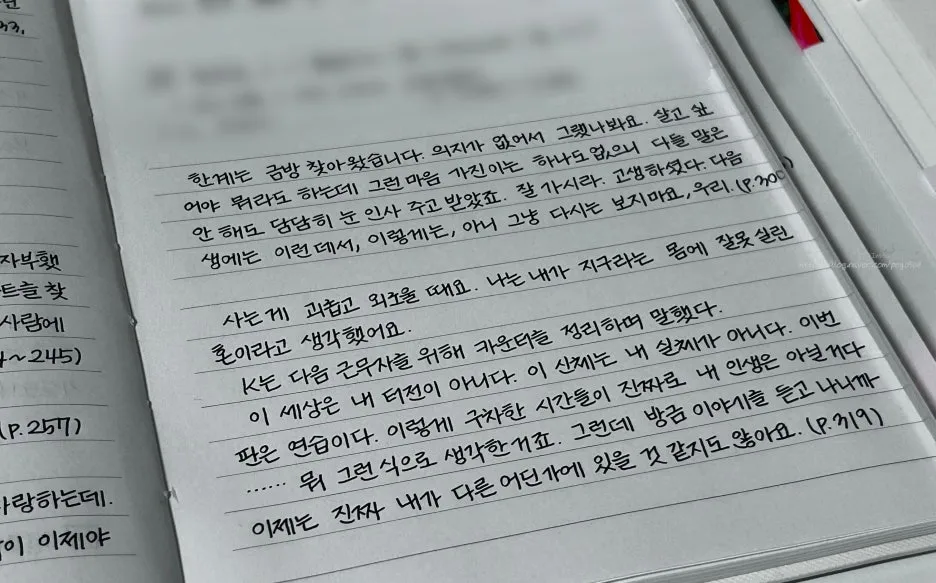 33,
자부했
트를 찾
사람에
~245)
(P.257)
사랑하는데.
이 이제야
한계는 금방 찾아왔습니다. 의지가 없어서 그랬나봐요. 살고 싶
어야 뭐라도 하는데 그런 마음 가진 이는 하나도 없으니 다들 말은
안 해도 담담히 눈 인사 주고 받았죠. 잘 가시라. 고생하셨다. 다음
생에는 이런 데서, 이렇게는, 아니 그냥 다시는 보지마요, 우리. (p.300)
사는게 괴롭고 외로울 때요. 나는 내가 지구라는 몸에 잘못 실린
혼이라고 생각했어요.
K는 다음 근무자를 위해 카운터를 정리하며 말했다.
이 세상은 내 터전이 아니다. 이 신체는 내 실체가 아니다. 이번
판은 연습이다. 이렇게 구차한 시간들이 진짜로 내 인생은 아닐거다
...... 뭐 그런 식으로 생각한거죠. 그런데 방금 이야기를 듣고 나니까
이제는 진짜 내가 다른 어딘가에 있을 것 같지도 않아요. (p.319)